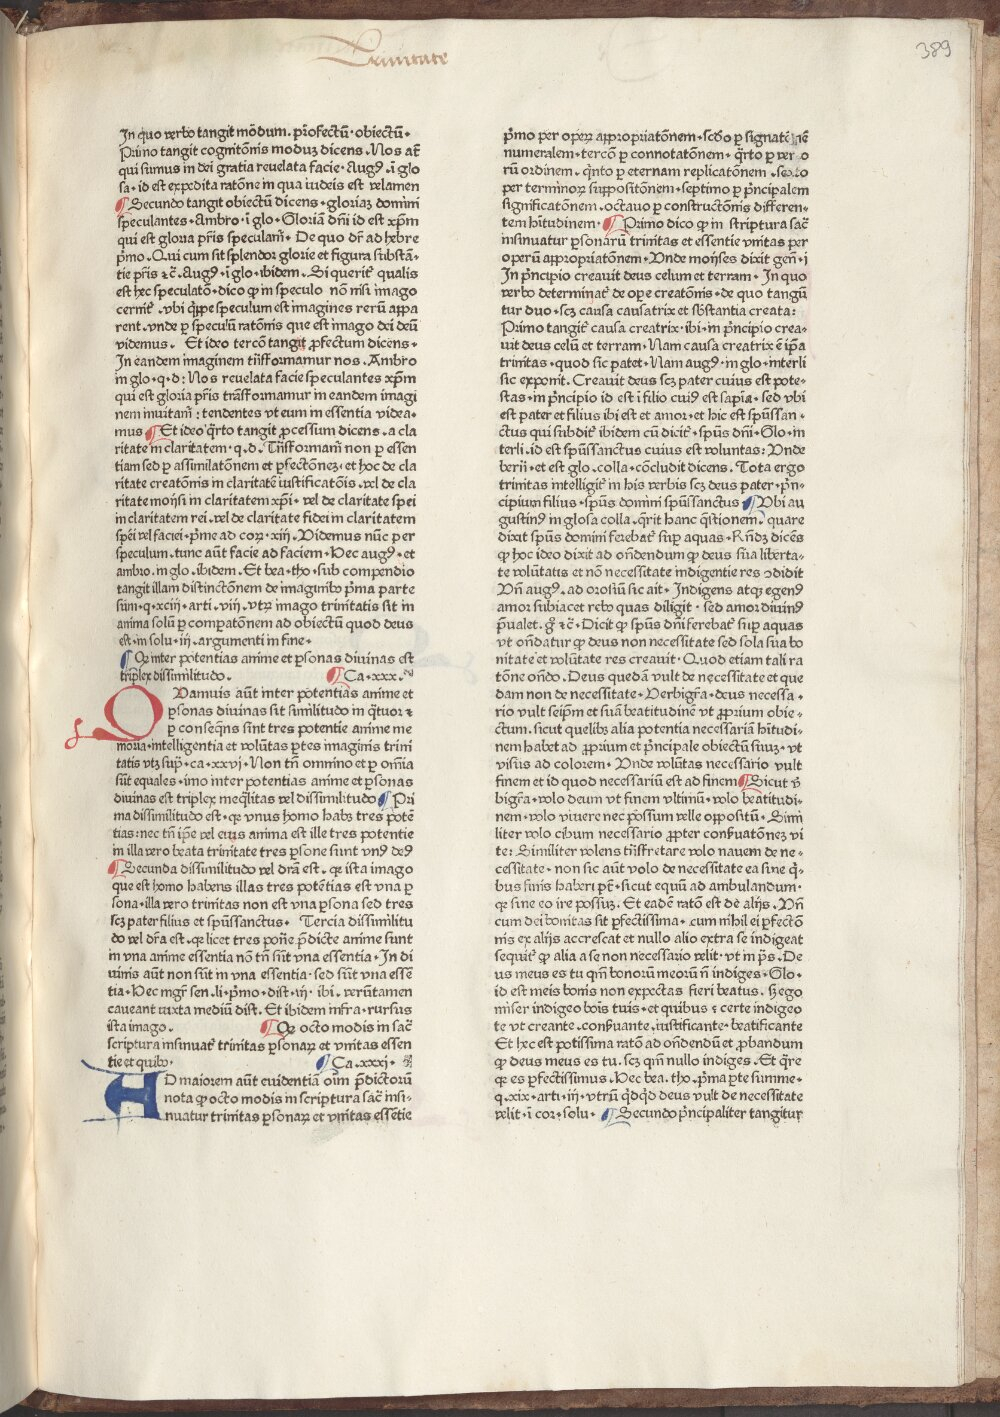 Trinitate
389
In quo verbo tangit modum. profectū. obiectū.
Primo tangit cognitōnis moduȝ dicens. Nos aūt
qui sumus in dei gratia revelata facie. Augꝰ. ī glo
sa. id est expedita ratōne in qua iudeis est velamen
¶ Secundo tangit obiectū dicens. gloriaȝ domini
speculantes. Ambro. ī glo. Gloriā dn̄i id est xp̄m
qui est gloria pr̄is speculam̄. De quo dr̄ ad hebre
p̄mo. Qui cum sit splendor glorie et figura substā-
tie pr̄is ⁊c̄. Augꝰ. ī glo. ibidem. Si querit̄ qualis
est hec speculatō. dico ꝙ in speculo nō nisi imago
cernit̄. vbi q̄ppe speculum est imagines rerū appa
rent. vnde ꝑ speculū ratōnis que est imago dei deū
videmus. Et ideo tercō tangit ꝓfectum dicens.
In eandem imaginem trāsformamur nos. Ambro
in glo. q. d: Nos revelata facie speculantes xp̄m
qui est gloria pr̄is trāsformamur in eandem imagi
nem invitam̄: tendentes vt eum in essentia videa-
mus ¶ Et ideo q̄rto tangit ꝓcessum dicens. a cla
ritate in claritatem. q. d. Trāsformam̄ non ꝑ essen
tiam sed ꝑ assimilatōnem et ꝑfectōneȝ. et hoc de cla
ritate creatōnis in claritatē iustificatōis. vel de cla
ritate moysi in claritatem xp̄i. vel de claritate spei
in claritatem rei. vel de claritate fidei in claritatem
spēi vel faciei. p̄me ad corꝝ. xiij. Videmus nūc per
speculum. tunc aūt facie ad faciem. Hec augꝰ. et
ambro. in glo. ibidem. Et bea. tho. sub compendio
tangit illam distinctōnem de imaginibꝰ p̄ma parte
sūm. q. xciij. arti. viij. vtꝝ imago trinitatis sit in
anima solū ꝑ comparatōnem ad obiectū quod deus
est. in solu. iij. argumenti in fine.
¶ Qꝙ inter potentias anime et ꝑsonas divinas est
triplex dissimilitudo. ¶ Ca. xxx.
QVamuis aūt inter potentias anime et
ꝑsonas divinas sit similitudo in q̄tuor ⁊
ꝑ conseq̄ns sint tres potentie anime me
moria. intelligentia et volūtas ꝑtes imaginis trini
tatis vtȝ sup̄. ca. xxvi. Non tn̄ omnino et ꝑ om̄ia
sūt equales. imo inter potentias anime et ꝑsonas
divinas est triplex ineq̄litas vel dissimilitudo ¶ Pri
ma dissimilitudo est. ꝙ vnus homo habȝ tres potē
tias: nec tn̄ ip̄e vel eius anima est ille tres potentie
in illa vero beata trinitate tres ꝑsone sunt vnꝰ deꝰ
¶ Secunda dissimilitudo vel dr̄ia est. ꝙ ista imago
que est homo habens illas tres potētias est vna ꝑ
sona. illa vero trinitas non est vna ꝑsona sed tres
scȝ pater filius et spūssanctus. Tercia dissimilitu
do vel dr̄a est. ꝙ licet tres potn̄e p̄dicte anime sunt
in vna anime essentia nō tn̄ sūt vna essentia. In di
vinis aūt non sūt in vna essentia. sed sūt vna essē
tia. Hec mgr̄ sen. li. p̄mo. dist. iij. ibi. verūtamen
caveant iuxta mediū dist. Et ibidem infra. rursus
ista imago. ¶ Qꝙ octo modis in sac̄
scriptura insinuat̄ trinitas ꝑsonaꝝ et vnitas essen
tie et quibꝰ. ¶ Ca. xxxi.
AD maiorem aūt euidentiā oīm p̄dictorū
nota ꝙ octo modis in scriptura sac̄ insi-
nuatur trinitas ꝑsonaꝝ et vnitas essētie
p̄mo per operꝝ appropriatōnem. scd̄o ꝑ signatē
numeralem. tercō ꝑ connotatōnem. q̄rto ꝑ ver o
rū ordinem. q̄nto ꝑ eternam replicatōnem. sexto
per terminoꝝ suppositōnem. septimo ꝑ p̄ncipalem
significatōnem. octauo ꝑ constructōnis differen-
tem hītudinem. ¶ Primo dico ꝙ in scriptura sac̄
insinuatur ꝑsonarū trinitas et essentie vnitas per
operū appropriatōnem. Vnde moyses dixit gen̄. i
In p̄ncipio creauit deus celum et terram. In quo
verbo determinat̄ de oꝑe creatōnis. de quo tangū
tur duo. scȝ causa causatrix et sb̄stantia creata:
Primo tangit̄ causa creatrix. ibi. in p̄ncipio crea-
uit deus celū et terram. Nam causa creatrix ē ip̄a
trinitas. quod sic patet. Nam augꝰ. in glo. interli
sic exponit. Creavit deus scȝ pater cuius est pote-
stas. in p̄ncipio id est ī filio cuiꝰ est sapīa. sed vbi
est pater et filius ibi est et amor. et hic est spūssan-
ctus qui subdit̄ ibidem cū dicit̄. spūs dn̄i. Glo. in
terli. id est spūssanctus cuius est voluntas: Vnde
bern̄. et est glo. colla. cōcludit dicens. Tota ergo
trinitas intelligit̄ in his verbis scȝ deus pater. p̄n-
cipium filius. spūs domini spūssanctus ¶ Vbi au
gustinꝰ in glosa colla. q̄rit hanc q̄stionem. quare
dixit spūs domini ferebat̄ suꝑ aquas. Rn̄dȝ dicēs
ꝙ hoc ideo dixit ad on̄dendum ꝙ deus sua liberta-
te volūtatis et nō necessitate indigentie res ↄdidit
Vn̄ augꝰ. ad orosiū sic ait. Indigens atqꝫ egenꝰ
amor subiacet rebꝰ quas diligit. sed amor diuinꝰ
p̄ualet. gͦ ⁊c̄. Dicit ꝙ spūs dn̄i ferebat̄ suꝑ aquas
vt on̄datur ꝙ deus non necessitate sed sola sua bo
nitate et volūtate res creavit. Quod etiam tali ra
tōne on̄do. Deus quedā vult de necessitate et que
dam non de necessitate. Verbigr̄a. deus necessa-
rio vult seip̄m et suā beatitudinē vt ꝓprium obie-
ctum. sicut quelibȝ alia potentia necessariā hitudi-
nem habet ad ꝓprium et p̄ncipale obiectū suuȝ. vt
visus ad colorem. Vnde volūtas necessario vult
finem et id quod necessariū est ad finem ¶ Sicut v̄
bigr̄a. volo deum vt finem vltimū. volo beatitudi-
nem. volo viuere nec possum velle oppositū. Simi
liter volo cibum necessario ꝓpter conẜuatōneȝ vi
te: Similiter volens trāsfretare volo nauem de ne-
cessitate. non sic aūt volo de necessitate ea sine q̄-
bus finis haberi pt̄. sicut equū ad ambulandum.
ꝙ sine eo ire possuȝ. Et eadē ratō est de alijs. Vn̄
cum dei bonitas sit ꝑfectissima. cum nihil ei ꝑfectō
nis ex alijs accrescat et nullo alio extra se indigeat
sequit̄ ꝙ alia a se non necessario velit. vt in p̄s. De
us meus es tu qm̄ bonorū meorū n̄ indiges. Glo.
id est meis bonis non expectas fieri beatus. Sꝫ ego
miser indigeo bōis tuis. et quibus? certe indigeo
te vt creante. conẜuante. iustificante. beatificante
Et hec est potissima ratō ad on̄dendū et ꝓbandum
ꝙ deus meus es tu. scȝ qm̄ nullo indiges. Et q̄re
ꝙ es ꝑfectissimus. Hec bea. tho. p̄ma ꝑte summe.
q. xix. arti. iij. vtrū q̄dq̄d deus vult de necessitate
velit. ī cor. solu. ¶ Secundo p̄ncipaliter tangitur